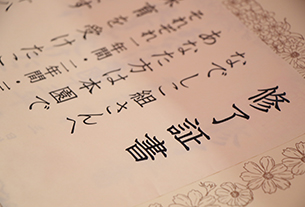 修了証書
なでしこ組さんへ
あなた方は本園で
それぞれ一年間・二年間・三
保育を受けたこ